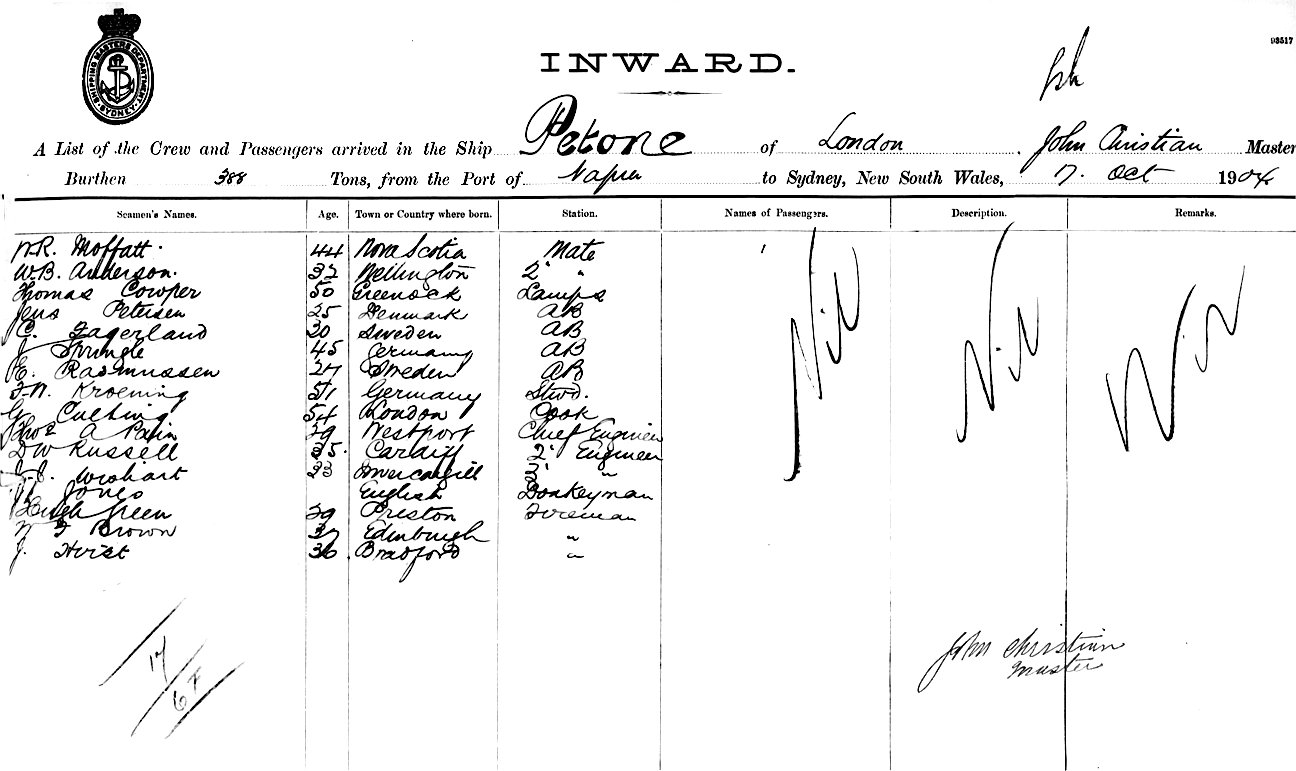 SHIPPING MASTERS DEPARTMENT SYDNEY
INWARD.
A List of the Crew and Passengers arrived in the Ship Petone of London, John Christian Master
Burthen 388 Tons, from the Port of to Sydney, New South Wales, 7. Oct 1904
Seamen's Names. Age. Town or Country where born. Station. Names of Passengers. Description. Remarks.
Moffatt 44 Nova Scotia Mate
W.B. Anderson. Wellington 2" "
Thomas Cowper 50 Greenock Lamps
Jens Petersen 25 Denmark AB
C. Fagerland 30 Sweden AB
J. 45 Germany AB
Rasmussen 27 Sweden AB
Kroening 51 Germany Stwd.
G. 54 London Cook
Thos A 39 Westport Chief Engineer
D W Russell Cardiff 2" Engineer
Wishart 23 Invercargill "
Jones English Donkeyman
Hugh Green 39 Preston Fireman
Brown 37 Edinburgh "
J. 36 Bradford "
Nil Nil Nil
John Christian
Master
17